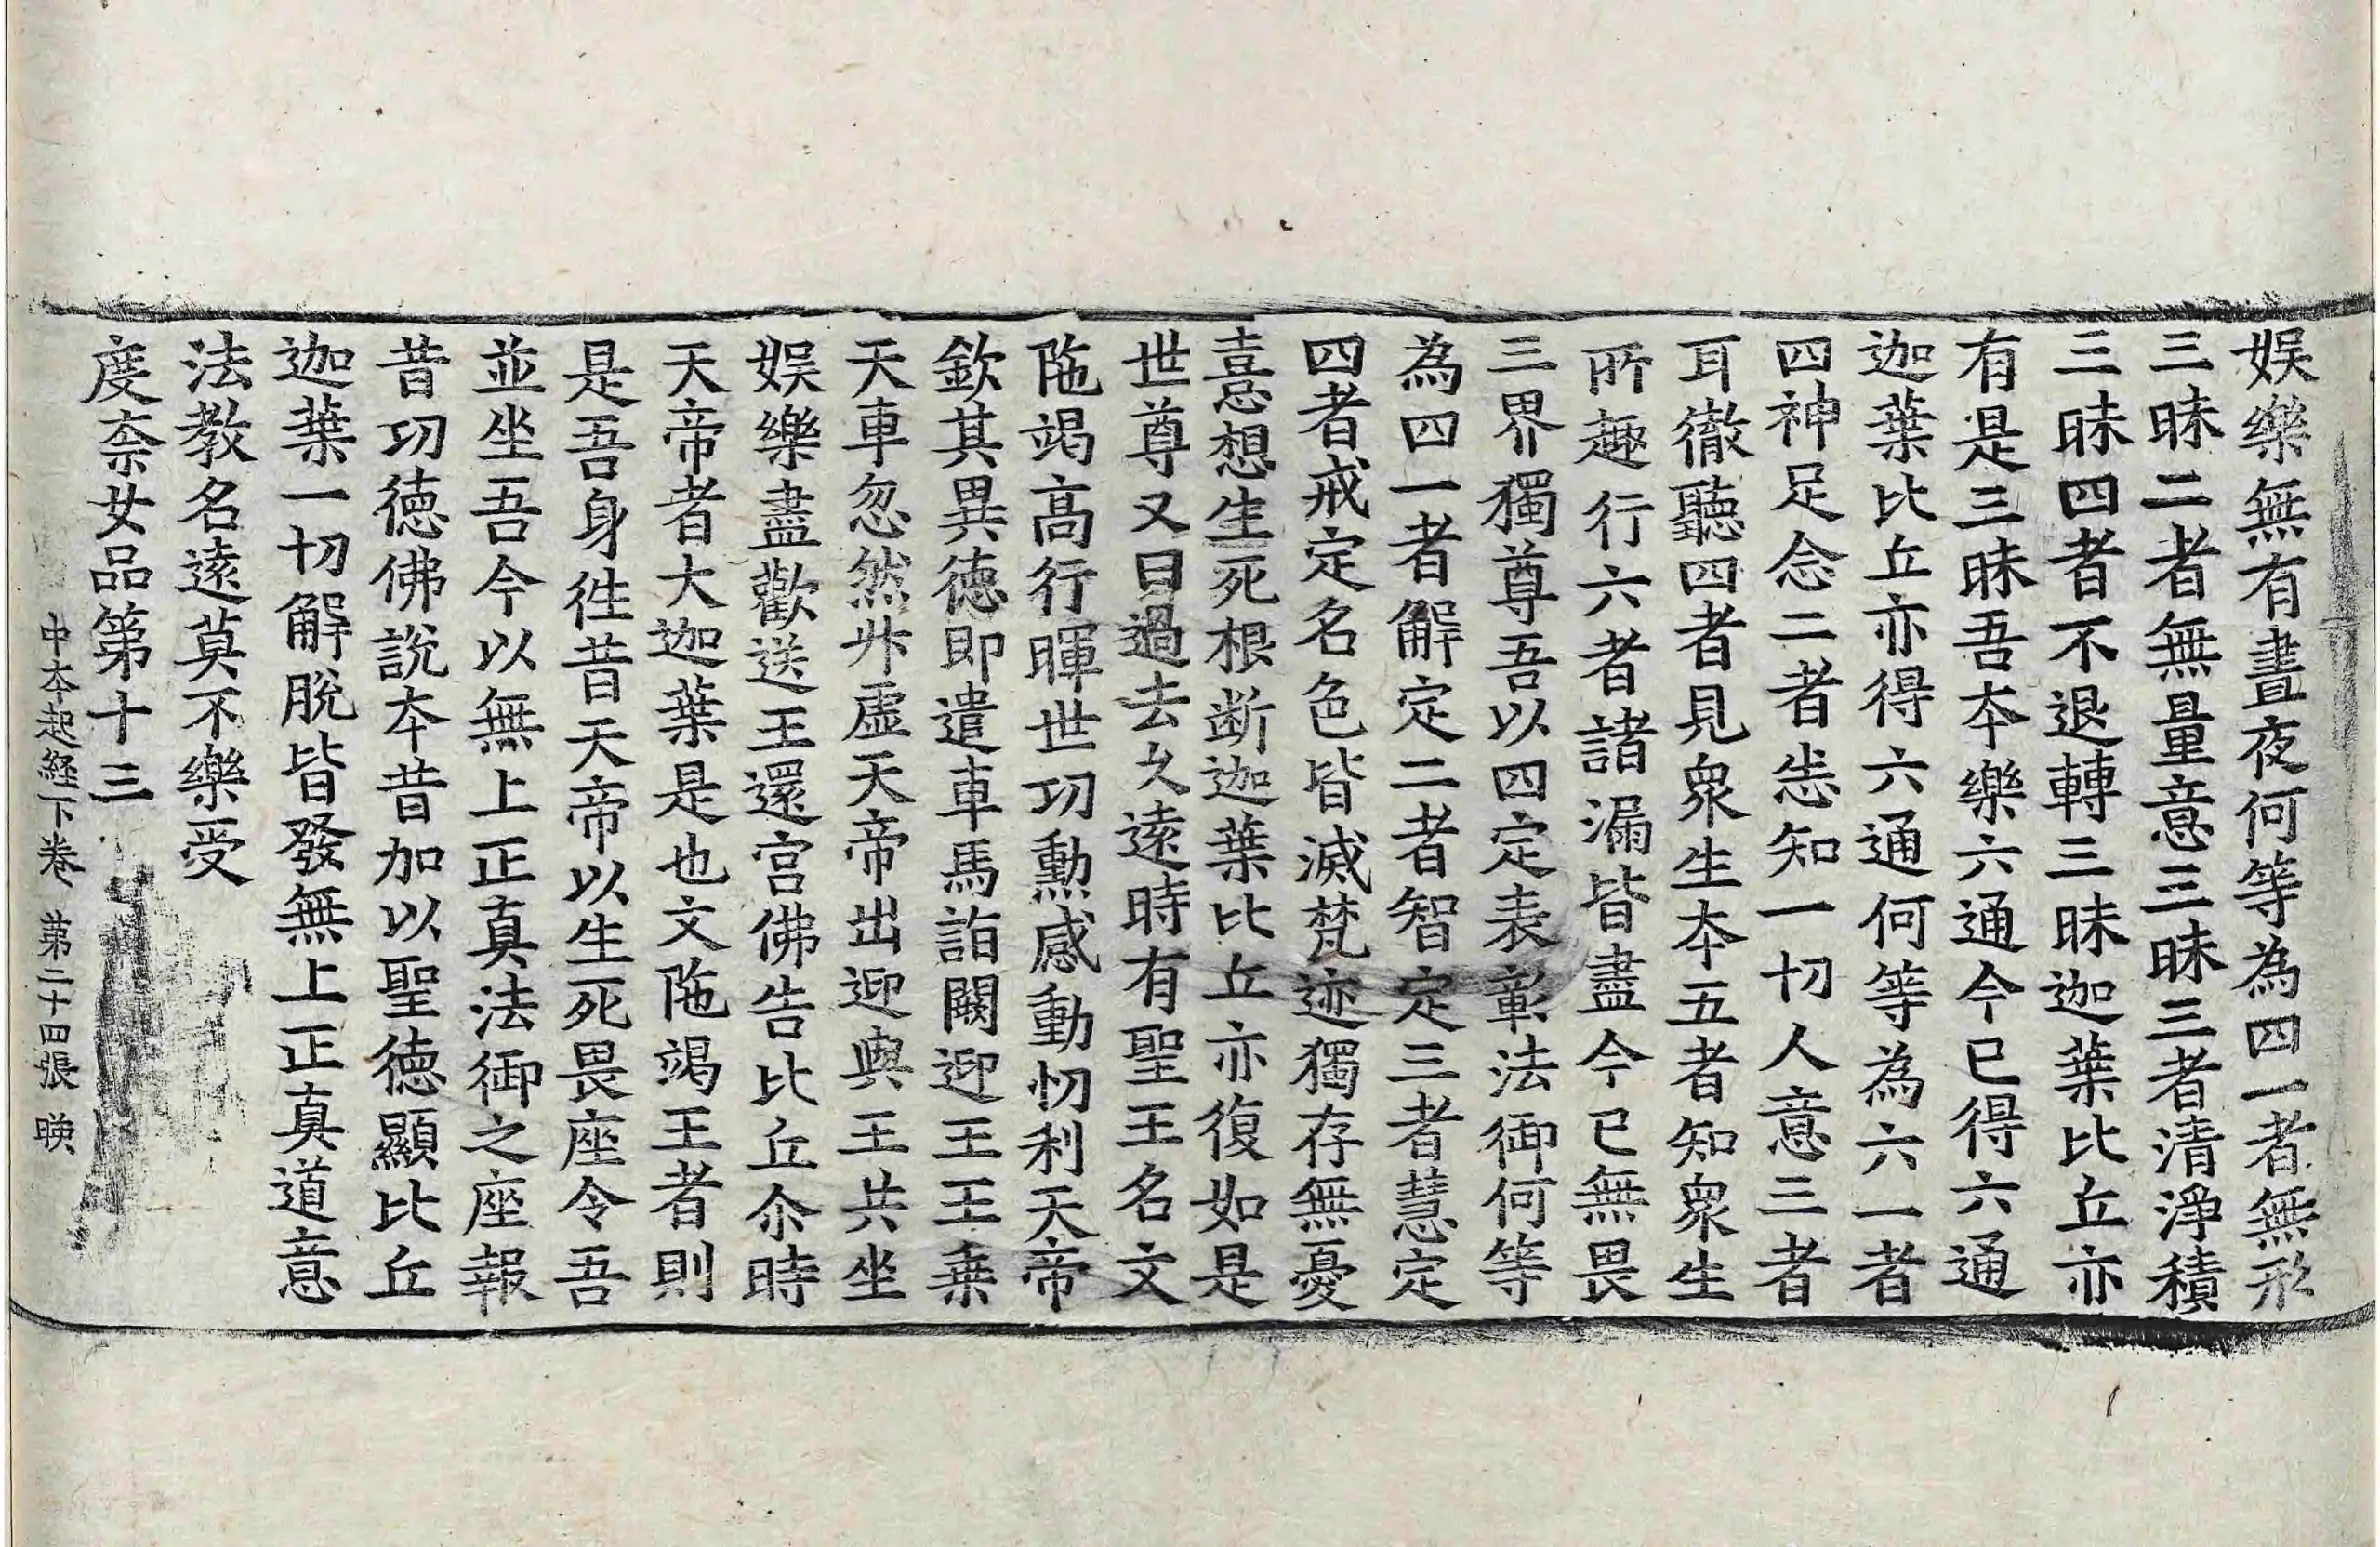 娛樂無有晝夜何等為四一者無形
三昧二者無量意三昧三者清淨積
三昧四者不退轉三昧迦葉比丘亦
有是三昧吾本樂六通今已得六通
迦葉比丘亦得六通何等為六一者
四神足念二者悉知一切人意三者
耳徹聽四者見衆生本五者知衆生
所趣行六者諸漏皆盡今已無畏
三界獨尊吾以四定表彰法御何等
為四一者解定二者智定三者慧定
四者戒定名色皆滅梵迹獨存無憂
喜想生死根断迦葉比丘亦復如是
世尊又曰過去久遠時有聖王名文
陁竭高行暉世功勳感動忉利天帝
欽其異德即遣車馬詣闕迎王王乗
天車忽然升虛天帝出迎與王共坐
娛樂盡歡送王還宮佛告比丘尒時
天帝者大迦葉是也文陁竭王者則
是吾身徃昔天帝以生死畏座令吾
並坐吾今以無上正真法御之座報
昔功德佛說本昔加以聖德顯比丘
迦葉一切解脫皆發無上正真道意
法教名遠莫不樂受
度柰女品第十三
中本起経下卷 第二十四張 𭧂